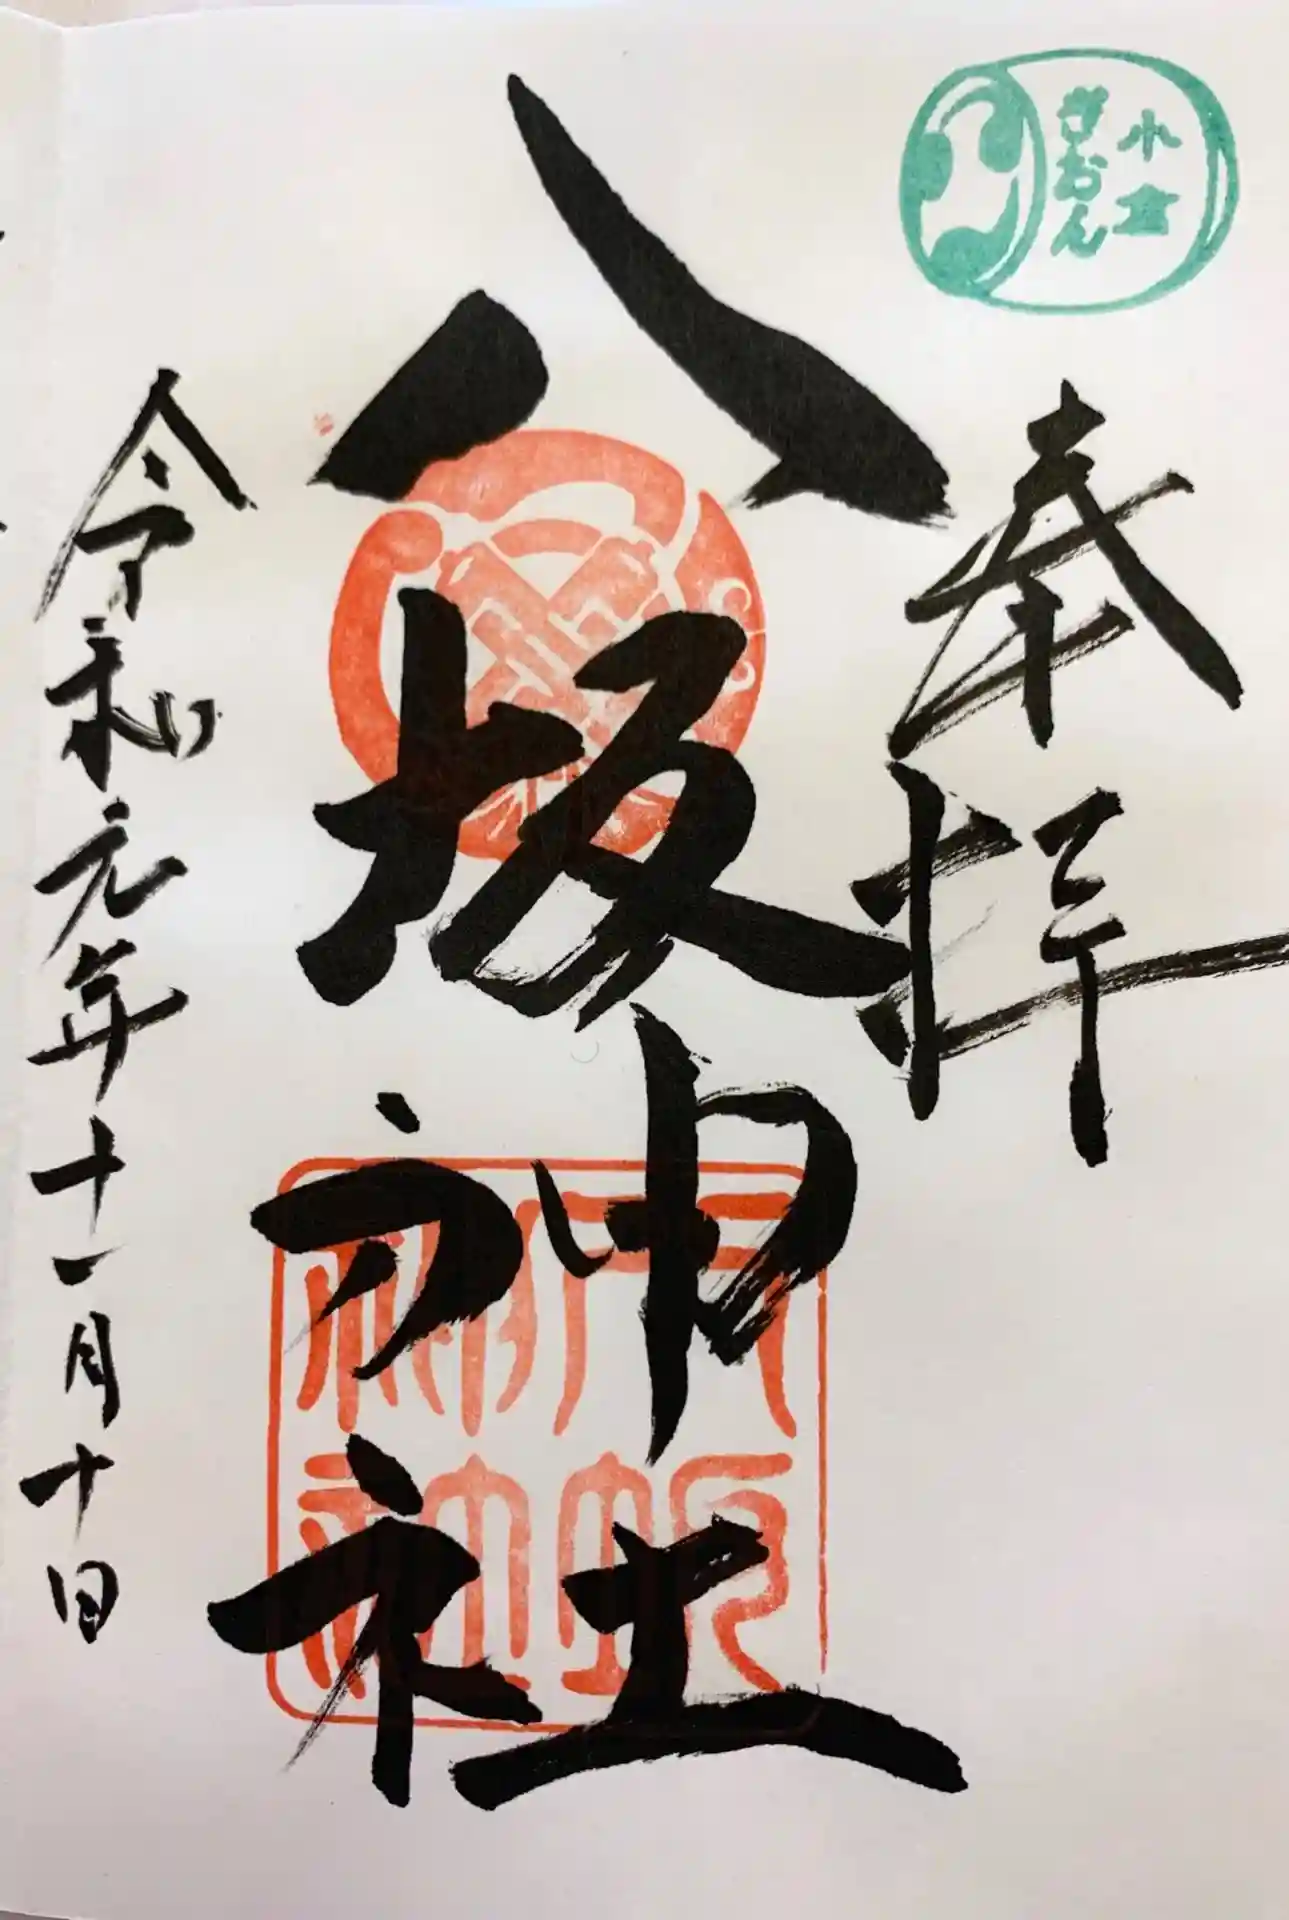 小倉
ぎおん
奉拝
八坂神社
八坂
神社
令和元年十一月十日